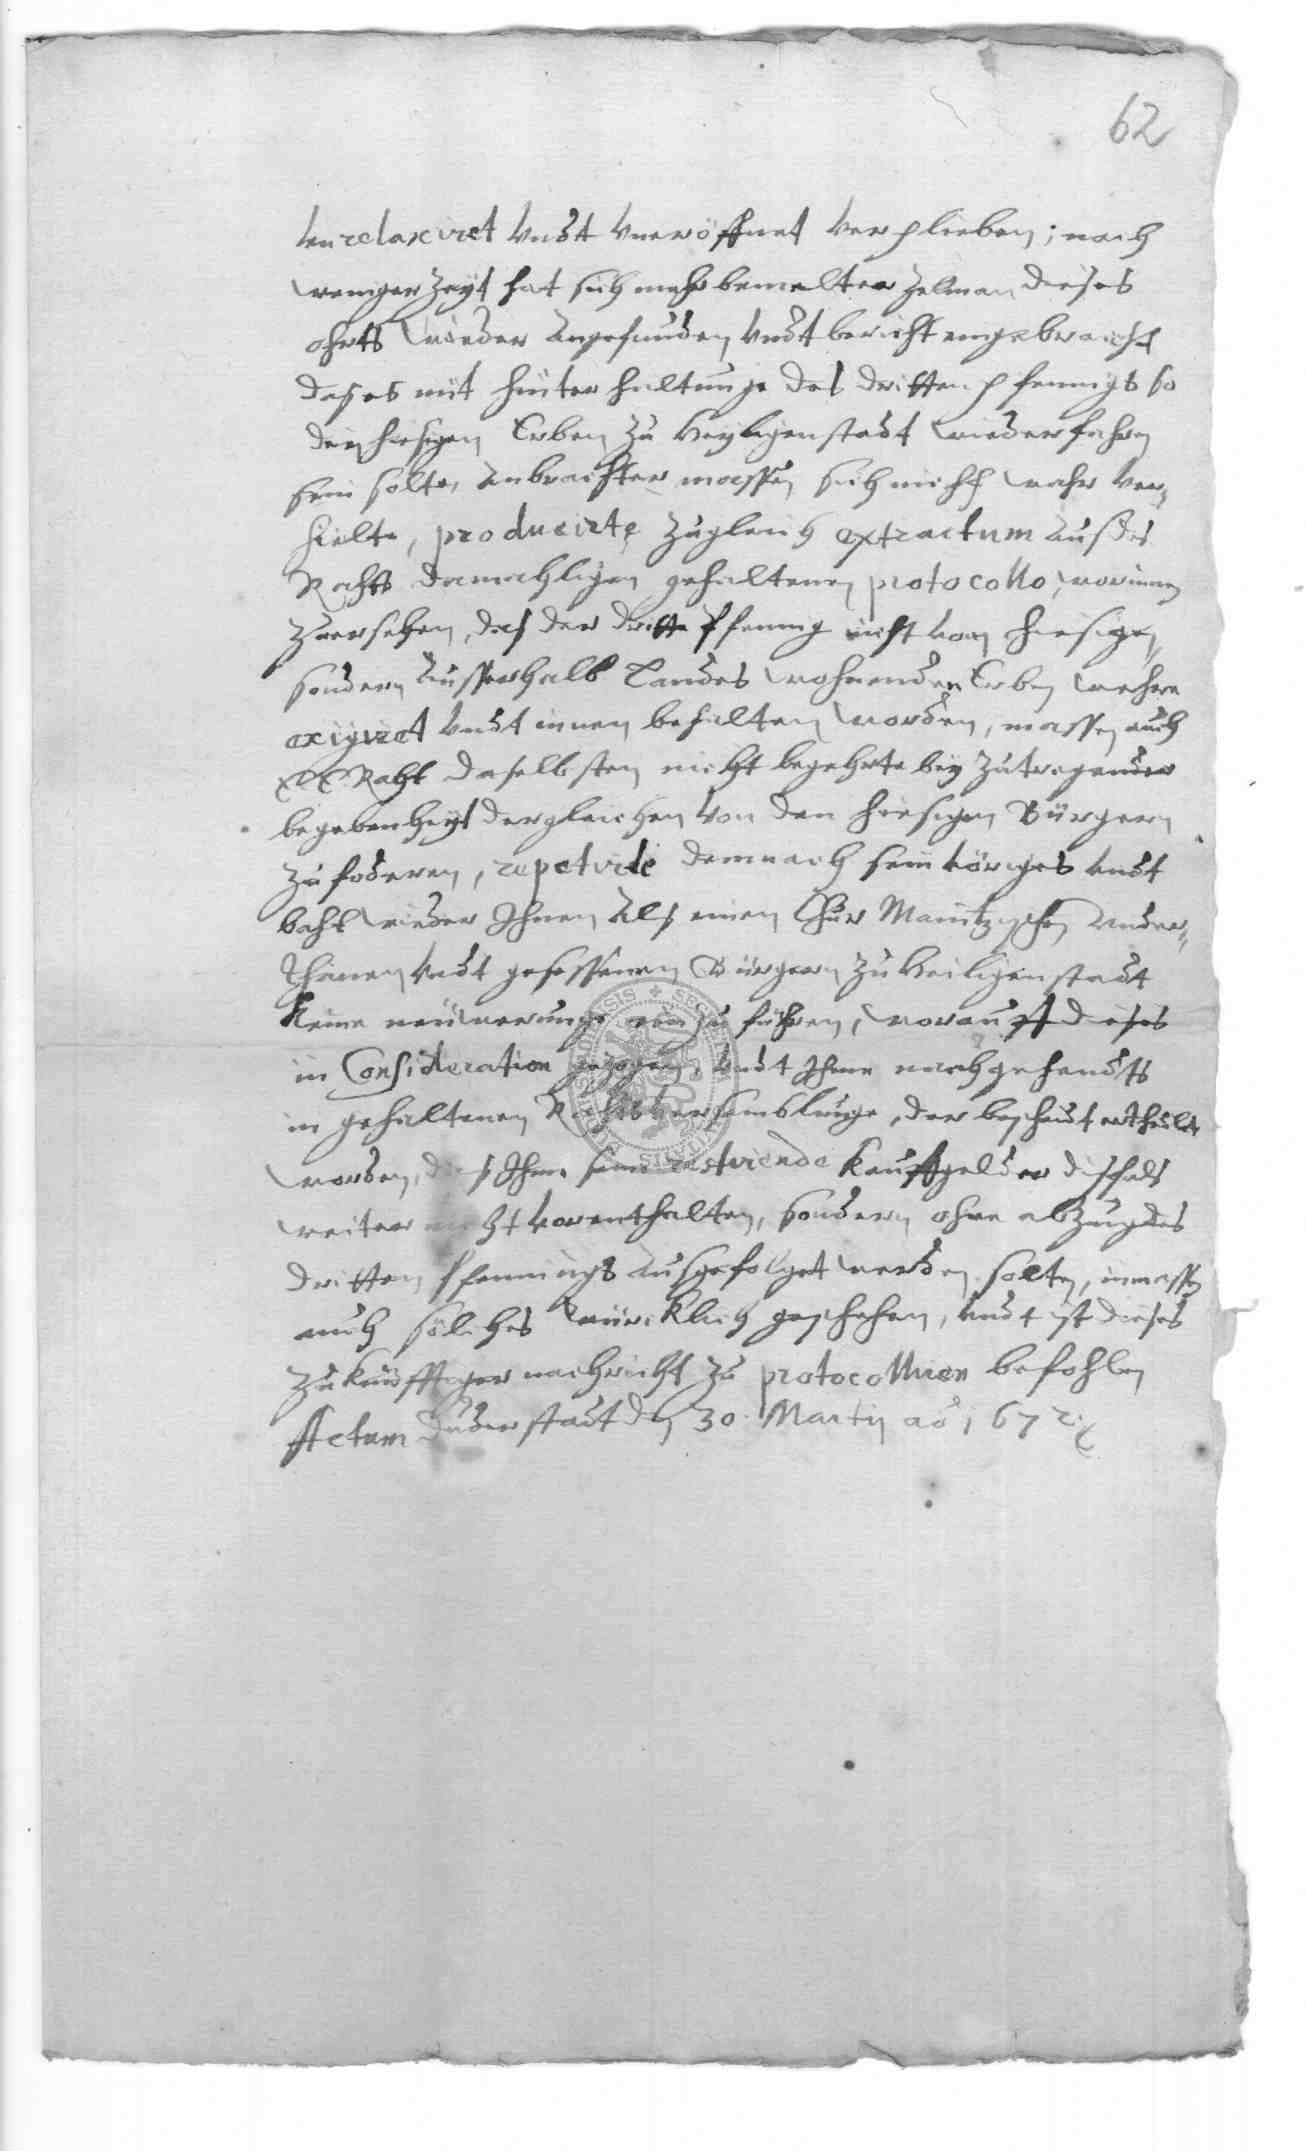 62
unrelaxiret undt uneröffnet verplieben; nach
weniger Zeyt hat sich mehr bemelter Zelman dieses
ohrts wieder angefunden, undt bericht eingebracht
das es mit hinterhaltunge des dritten pfennigs so
den hiesigen Erben zu Heyligenstadt wiederfahren
sein solte, anbrachter massen sich nicht wahr ver-
hielte, producirte zugleich extractum auß des
Rahts damahligen gehaltenen protocollo, worinnen
zuersehen, das der dritte Pfennig nicht von hiesigen,
sondern ausserhalb Landes wohnenden Erben wehre
exigiret undt innen behalten worden, massen auch
Raht daselbsten nicht begehrte bey zutragender
begebenheyt dergleichen von den hiesigen Bürgern
zu foderen, repetirte demnach sein voriges undt
baht wieder Ihnen als einen Chur Maintzischen under-
thanen undt gesessenen Bürgern zu Heiligenstadt
keine neuwerunge einzuführen, worauff dieses
in Consideration gezogen, undt Ihme nachgehendts
in gehaltenen Rahts versamblunge, der bescheidt ertheilet
worden, das Ihme seine restirende Kauffgelder disfals
weiter nicht vorenthalten, sondern ohne abzug des
dritten Pfennings ausgefolget werden solten, inmassen
auch solches würcklich geschehen, undt ist dieses
zukünfftiger nachricht zu protocolliren befohlen
Actum Duderstadt den 30. Martij ao 1672